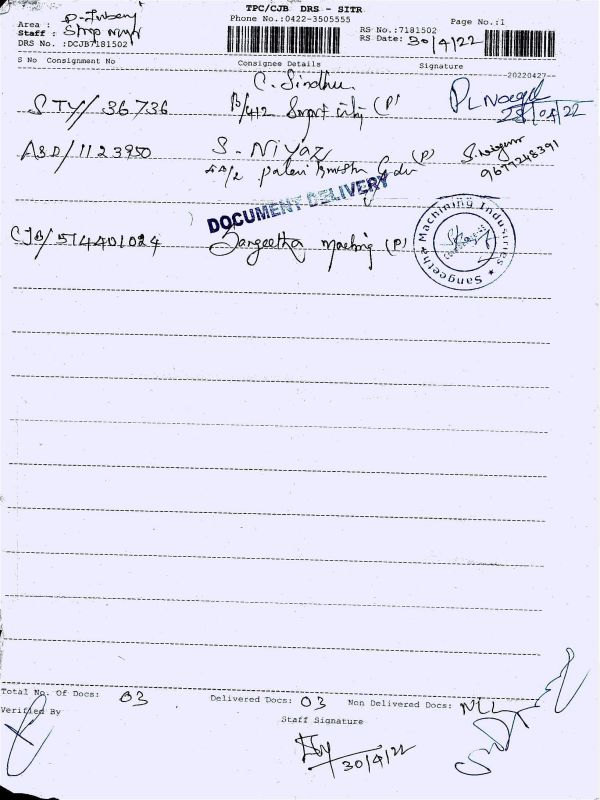 TPC/CJB DRS - SITR
Area :
Phone No.:0422-3505555
Page No.:1
Staff :
RS No.:7181502
DRS No. :DCJB7181502
RS Date: 30/4/22
S No Consignment No
Consignee Details
Signature
20220427
C. Sindhu
STY/ 36736
B/412 Smart City (P)
ABD/1123950
S- Niyaz (P)
9677248391
DOCUMENT DELIVERY
CJB/514401024
Sangeetha (P)
Sangeetha Machining Industries
Total No. Of Docs: 03
Delivered Docs: 03
Non Delivered Docs: NIL
Verified By
Staff Signature
30/4/22